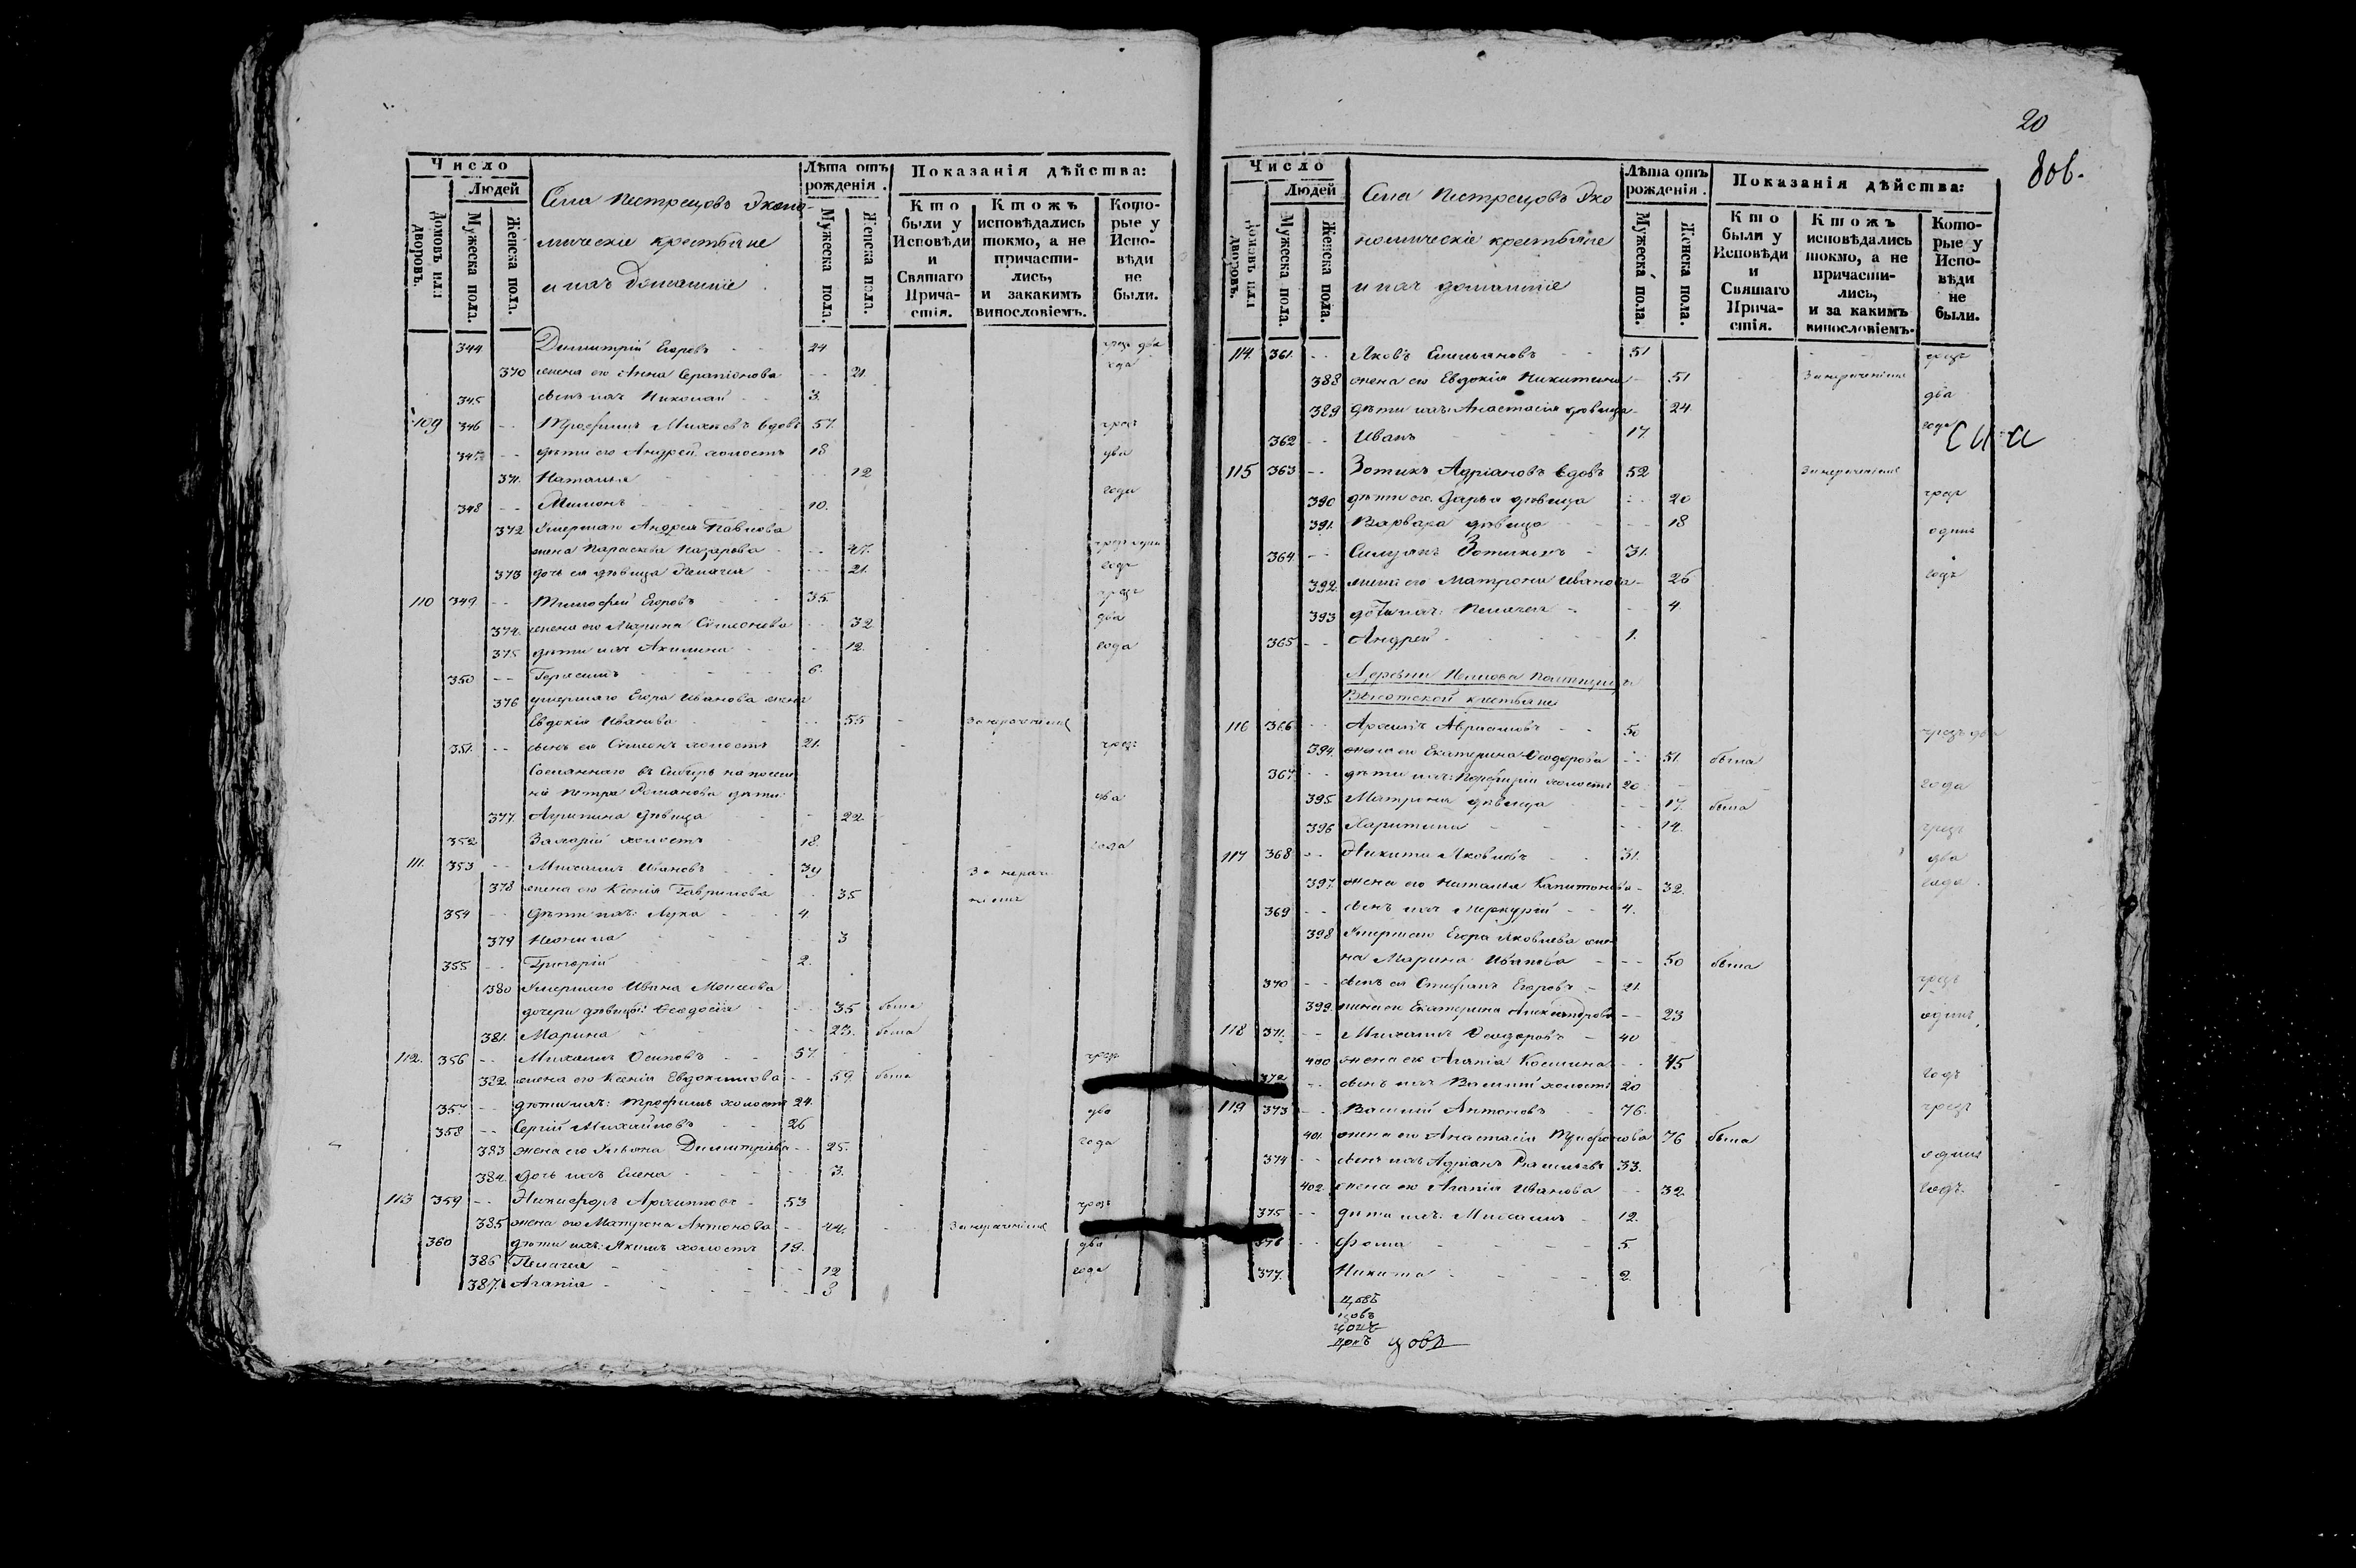 Число
Людей
Домовъ или дворовъ.
Мужеска пола.
Женска пола.
Села Пестрецовъ Эконо-
мическіе крестьяне
и ихъ домашніе
Лѣта отъ рожденія.
Мужеска пола.
Женска пола.
Показанія дѣйства:
Кто были у Исповѣди и Святаго Причастія.
Ктожъ исповѣдались токмо, а не причастились, и закакимъ винословіемъ.
Которые у Исповѣди не были.
344 Димитрій Егоровъ 24 чрез два
370 жена его Анна Серапіонова 21. года
345 сынъ ихъ Николай 3.
109 346 Трофимъ вдовъ 57. чрез
дѣти его Андрей холостъ 18 два
371. Наталья 12
348 10. года
372 Умершаго Андрея Павлова
жена Параскева Назарова 47.
373 дочь ея дѣвица Пелагея 21. годъ
110 349 Тимофей Егоровъ 35. чрезъ
374. жена его Марина Сѵмеонова 32. два
375 дѣти ихъ Акилина 12. года
350 Герасимъ 6.
376 умершаго Егора Иванова жена
Евдокія Иванова 55 за нераченіемъ
351. сынъ ея Сѵмеонъ холостъ 21. чрез:
Сосланнаго въ Сибирь на поселе
ніе Петра Романова дѣти: два
377. Агрипина дѣвица 22.
352 холостъ 18. года
111. 353 Михаилъ Ивановъ 39 за нераче
378 жена его Ксенія Гаврилова 35 ніемъ
354 дѣти ихъ: Лука 4.
379 Неонила 3
355 Григорій 2.
380 Умершаго Ивана Моисеева
дочери дѣвицы: Ѳеодосія 35 была
381. Марина 23. была
112. 356 Михаилъ Осиповъ 57. чрез
382. жена его Ксенія Евдокимова 59. была
357 дѣти ихъ: Трофимъ холостъ 24. два
358 Сергій Михайловъ 26
383 жена его Ульяна Димитріева 25. года
384. дочь ихъ Елена 3.
113 359 Никифоръ Архиповъ 53 чрезъ
385 жена его Матрона Антонова 44. за нераченіемъ
360 дѣти ихъ: Якимъ холостъ 19. два
386 Пелагея 12 года
387. Агапія 3
20
8об.
Число
Людей
Домовъ или дворовъ.
Мужеска пола.
Женска пола.
Села Пестрецовъ Эко
номическіе крестьяне
и ихъ домашніе
Лѣта отъ рожденія.
Мужеска пола.
Женска пола.
Показанія дѣйства:
Кто были у Исповѣди и Святаго Причастія.
Ктожъ исповѣдались токмо, а не причастились, и за какимъ винословіемъ.
Которые у Исповѣди не были.
114. 361. Яковъ Емельяновъ 51 чрезъ
388 жена его Евдокія Никитина 51 за нераченіемъ
389 дѣти ихъ: Анастасія дѣвица 24. два
362 Иванъ 17. года
115 363 Зотикъ Адріановъ вдовъ 52 за нераченіемъ
390 дѣти его: Дарья дѣвица 20 чрезъ
391. Варвара дѣвица 18 одинъ
364. Силуанъ Зотиковъ 31.
392. жена его Матрона Иванова 26 годъ
393 ихъ: Пелагея 4.
365 Андрей 1.
крестьяне
116 366 50 чрезъ два
394. жена его Екатерина Ѳеодорова 51. была
367. дѣти ихъ: Порфирій холостъ 20 года
395. Матрона дѣвица 17. была
396 Харитина 14. чрезъ
117 368 Никита Яковлевъ 31. два
397. жена его Наталья Капитонова 32. года
369 сынъ ихъ Меркурій 4.
398 Умершаго Егора Яковлева же
на Марина Иванова 50 была
370 сынъ ея Стефанъ Егоровъ 21. чрезъ
399. жена его Екатерина Александрова 23 одинъ
118 371. Михаилъ Ѳеодоровъ 40
400 жена его Агапія Косьмина 45 годъ
372 сынъ ихъ Василій холостъ 20
119 373 Василій Антоновъ 76. чрезъ
401. жена его Анастасія Трифонова 76 была
374 сынъ ихъ Адріанъ Васильевъ 33. одинъ
402. жена его Агапія Иванова 32 годъ.
375 дѣти ихъ: Михаилъ 12.
376 Фома 5.
377. Никита 2.